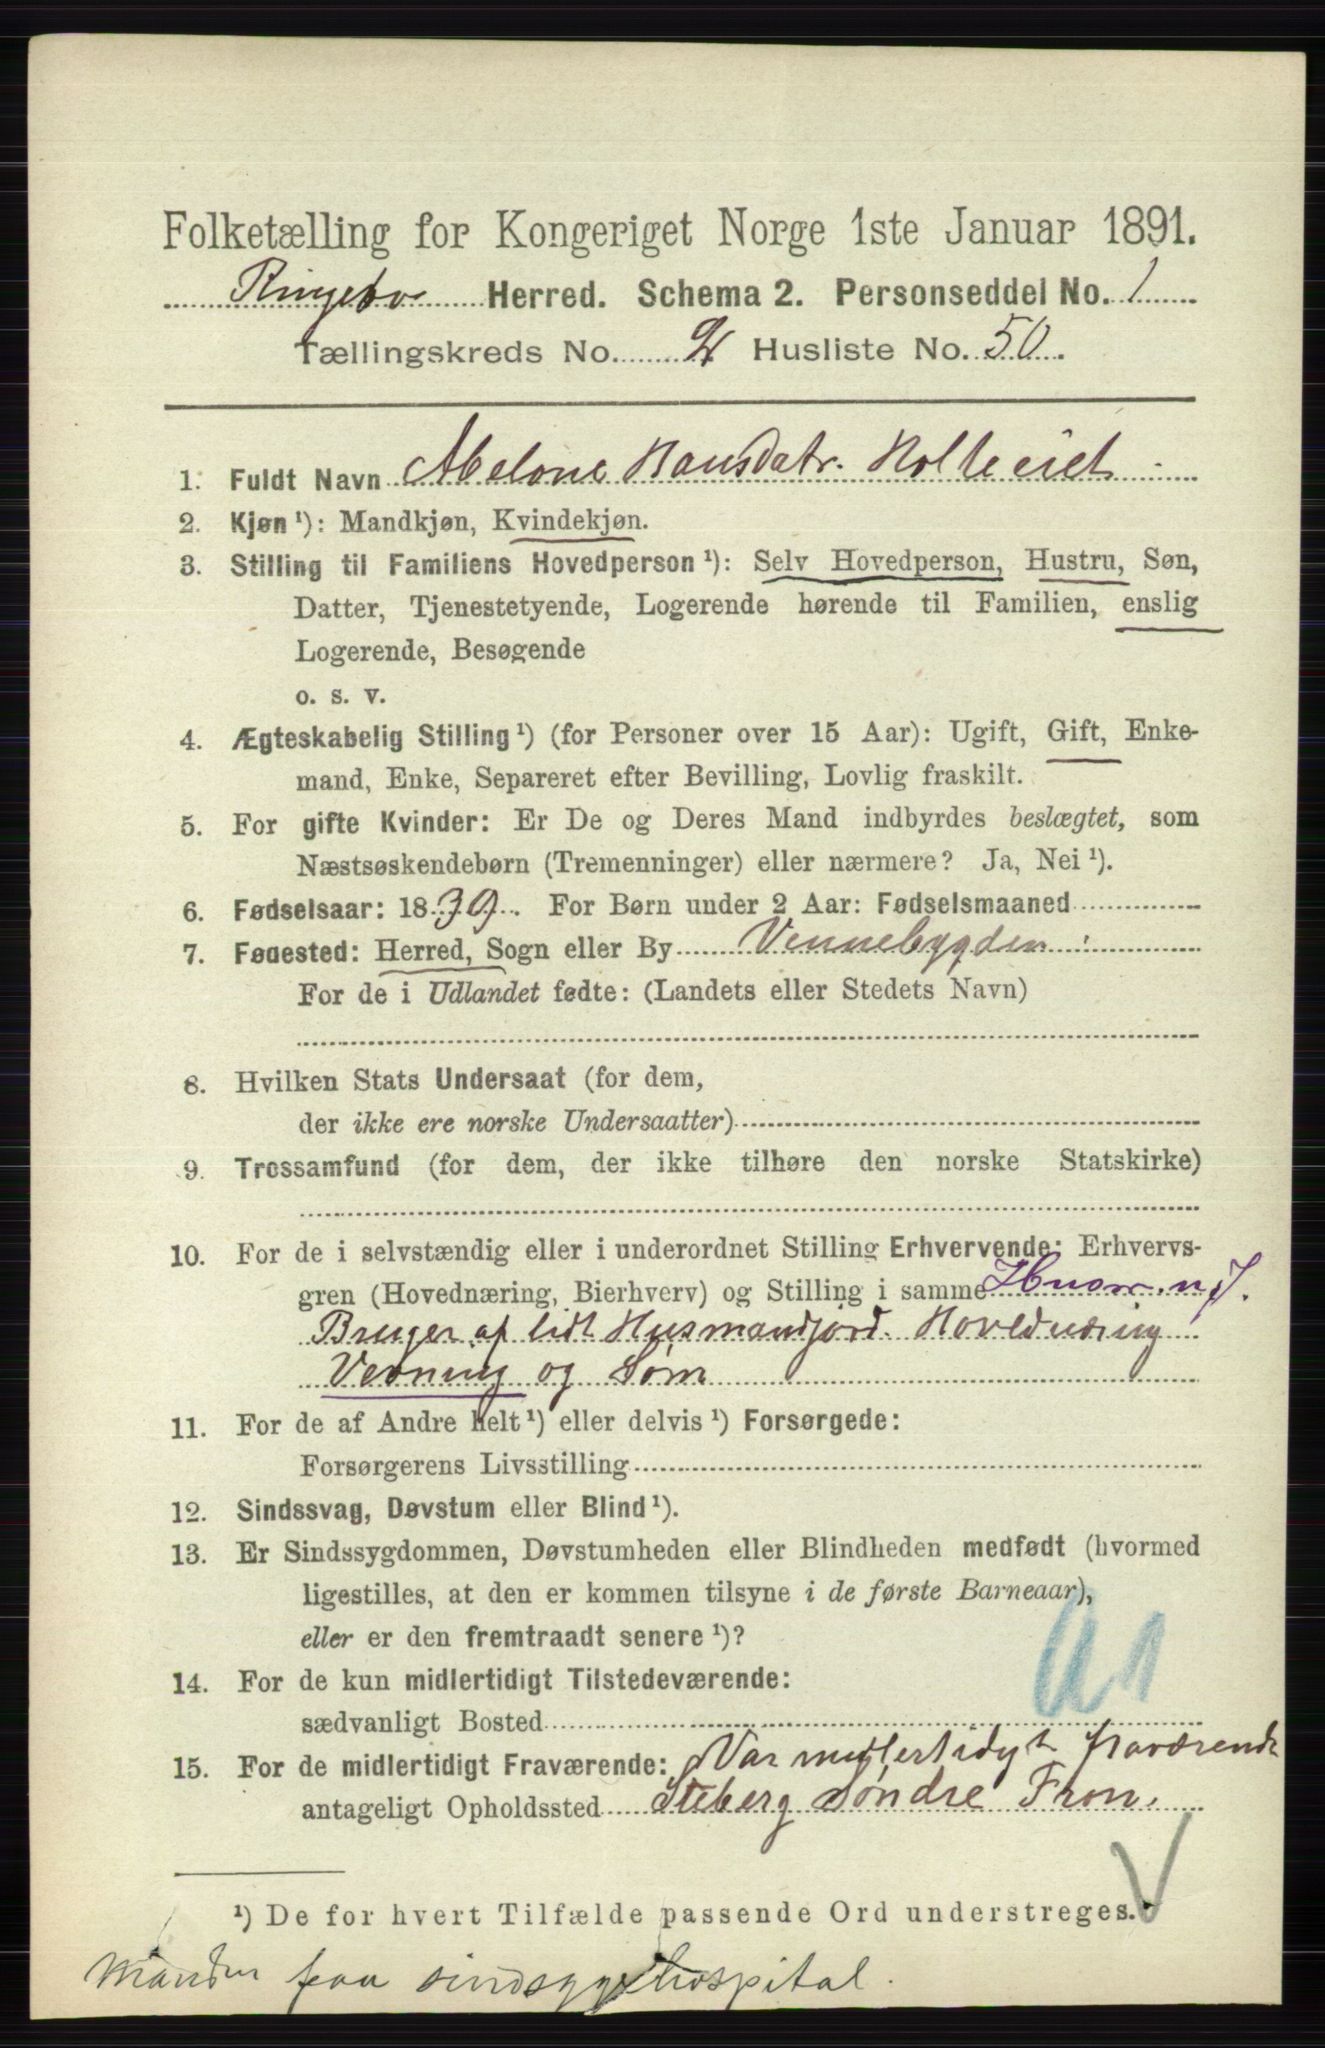 Folketælling for Kongeriget Norge 1ste Januar 1891.
Ringebo Herred. Schema 2. Personseddel No. 1
Tællingskreds No. 2 Husliste No. 50.
1. Fuldt Navn Abelone Hansdatr. Holteeiet
2. Kjøn ¹): Mandkjøn, Kvindekjøn.
3. Stilling til Familiens Hovedperson ¹): Selv Hovedperson, Hustru, Søn,
Datter, Tjenestetyende, Logerende hørende til Familien, enslig
Logerende, Besøgende
o. s. v.
4. Ægteskabelig Stilling ¹) (for Personer over 15 Aar): Ugift, Gift, Enke-
mand, Enke, Separeret efter Bevilling, Lovlig fraskilt.
5. For gifte Kvinder: Er De og Deres Mand indbyrdes beslægtet, som
Næstsøskendebørn (Tremenninger) eller nærmere? Ja, Nei ¹).
6. Fødselsaar: 1839. For Børn under 2 Aar: Fødselsmaaned
7. Fødested: Herred, Sogn eller By Vennebygden
For de i Udlandet fødte: (Landets eller Stedets Navn)
8. Hvilken Stats Undersaat (for dem,
der ikke ere norske Undersaatter)
9. Trossamfund (for dem, der ikke tilhøre den norske Statskirke)
10. For de i selvstændig eller i underordnet Stilling Erhvervende: Erhvervs-
gren (Hovednæring, Bierhverv) og Stilling i samme Husm. m J.
Bruger af lidt Husmandjord. Hovednæring
Vevning og Søm
11. For de af Andre helt ¹) eller delvis ¹) Forsørgede:
Forsørgerens Livsstilling
12. Sindssvag, Døvstum eller Blind ¹).
13. Er Sindssygdommen, Døvstumheden eller Blindheden medfødt (hvormed
ligestilles, at den er kommen tilsyne i de første Barneaar),
eller er den fremtraadt senere ¹)?
14. For de kun midlertidigt Tilstedeværende:
sædvanligt Bosted
15. For de midlertidigt Fraværende: Var midlertidigt fraværende
antageligt Opholdssted Steberg søndre Fron.
¹) De for hvert Tilfælde passende Ord understreges.
Manden paa sindsygehospital.